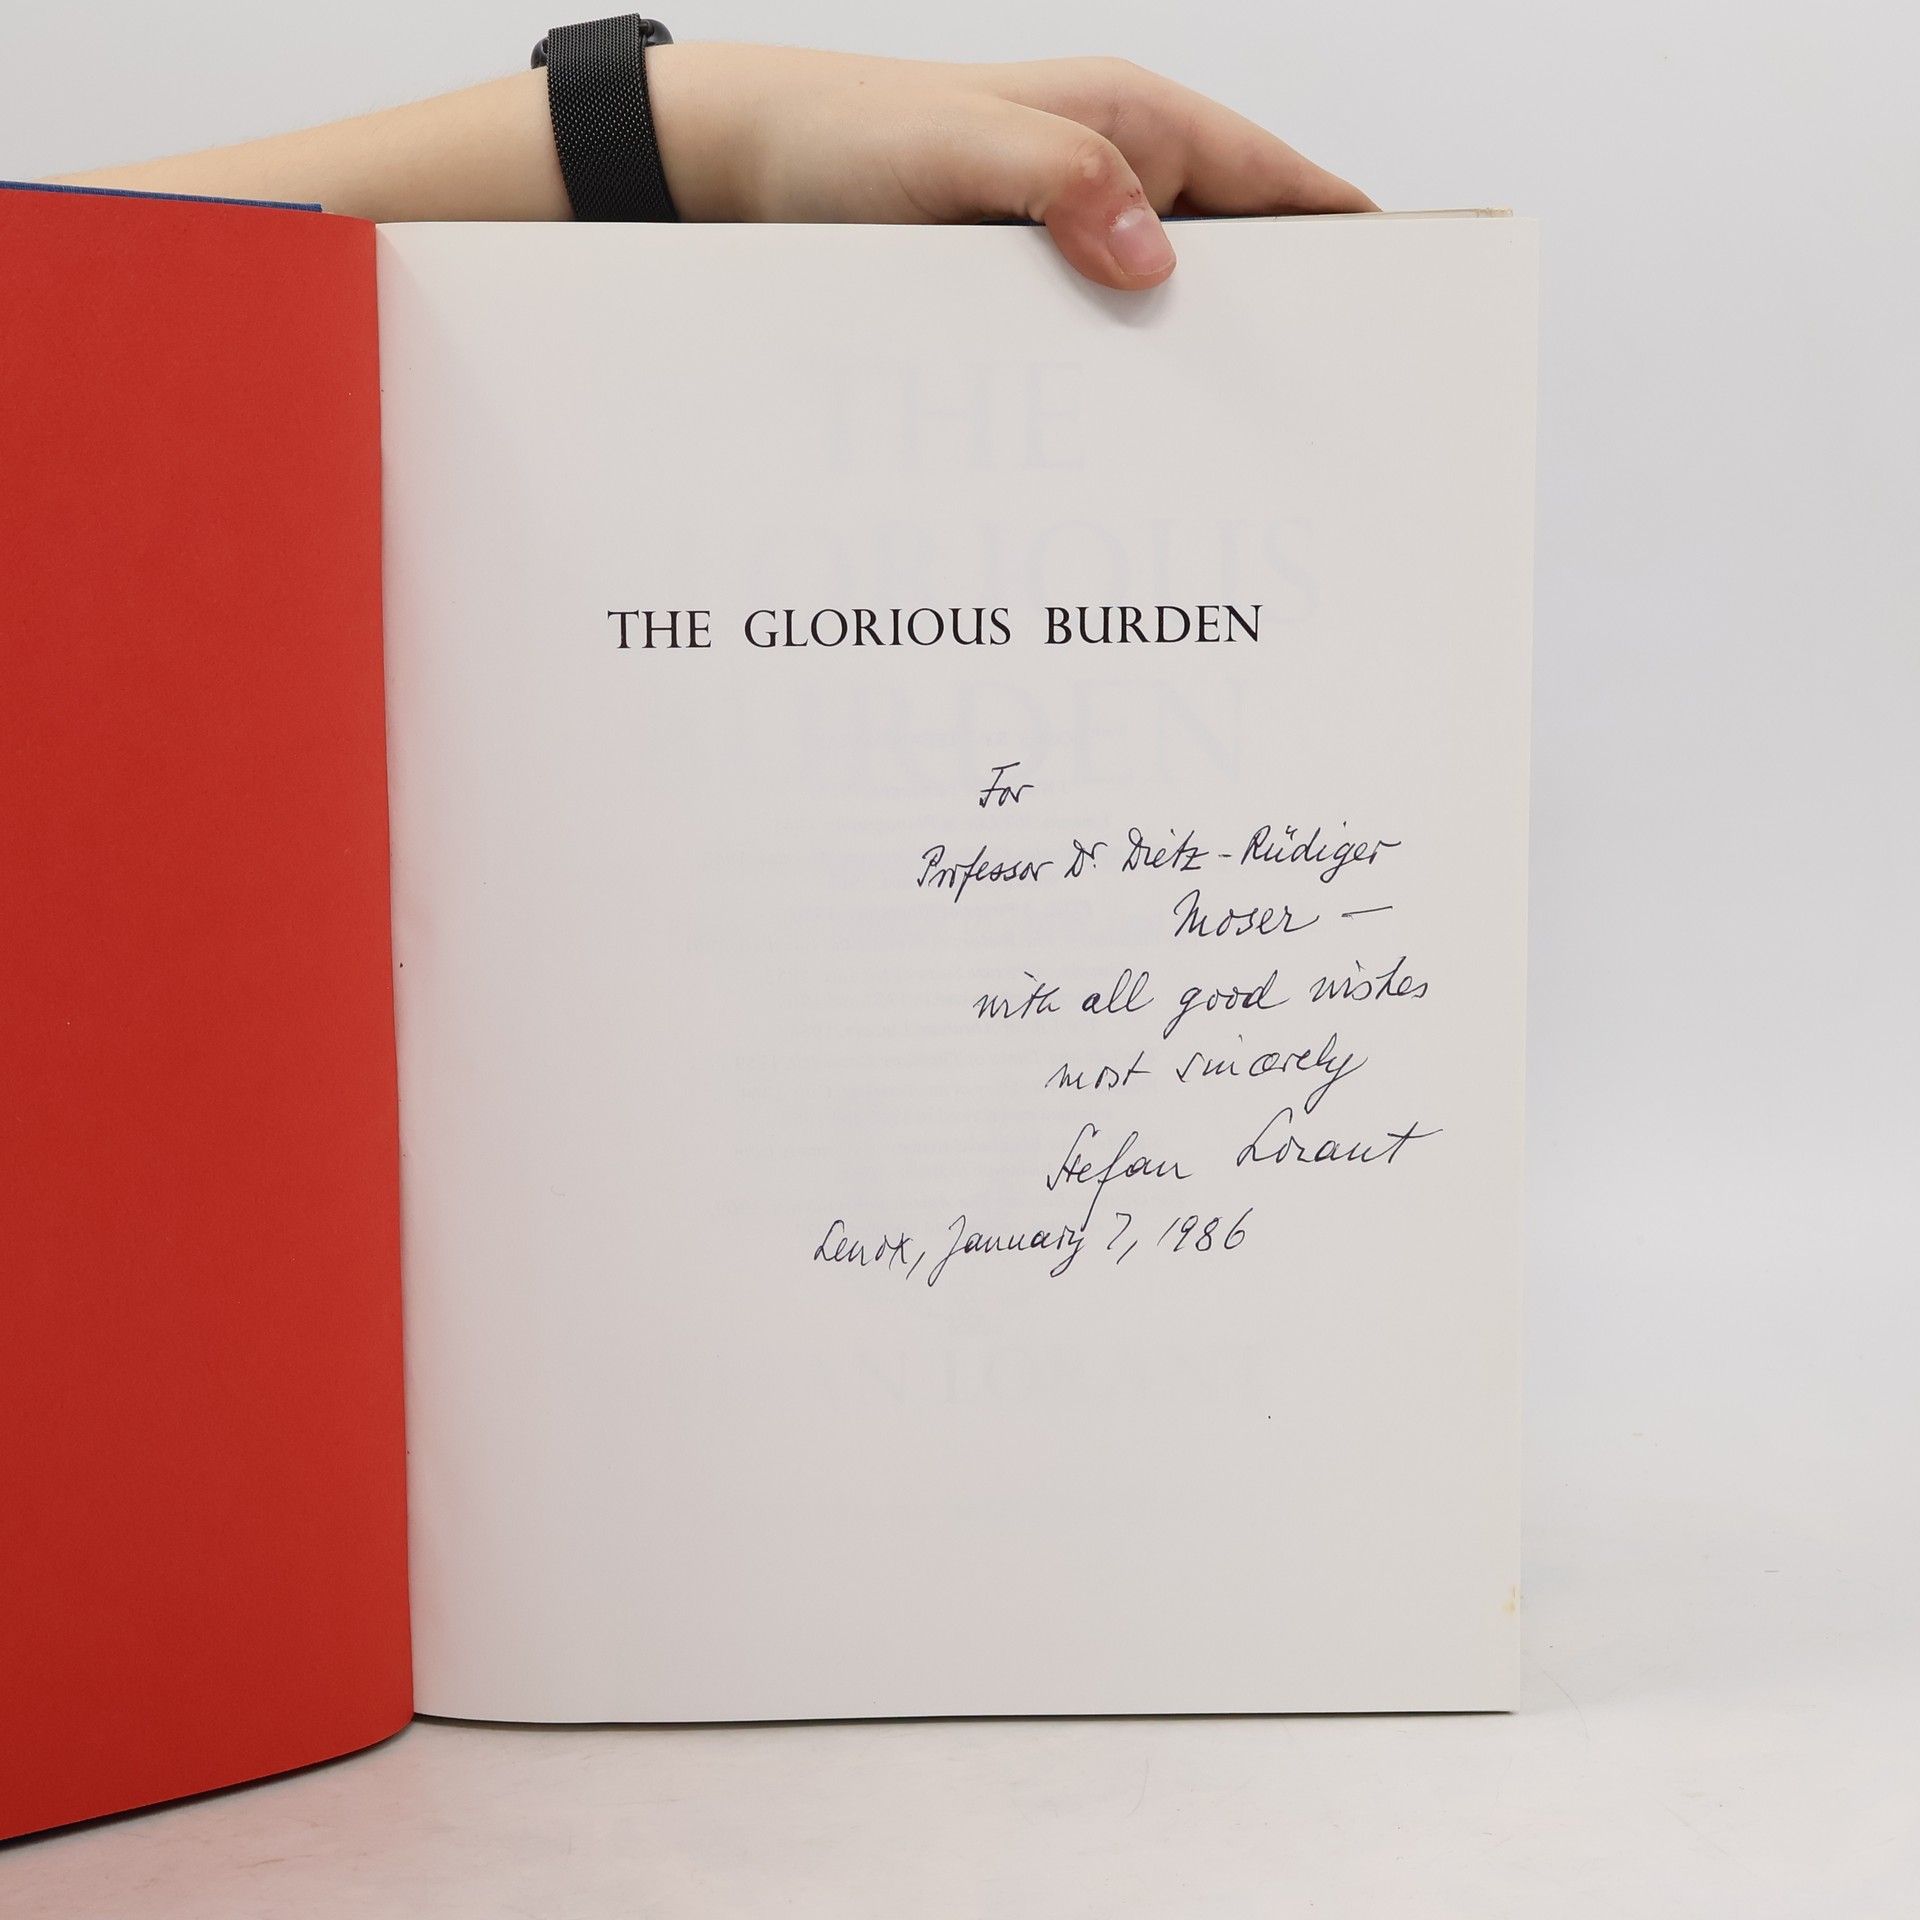 THE GLORIOUS BURDEN
For
Professor Dr. Dietz-Rüdiger
Moser —
with all good wishes
most sincerely
Stefan Lorant
Lenox, January 7, 1986